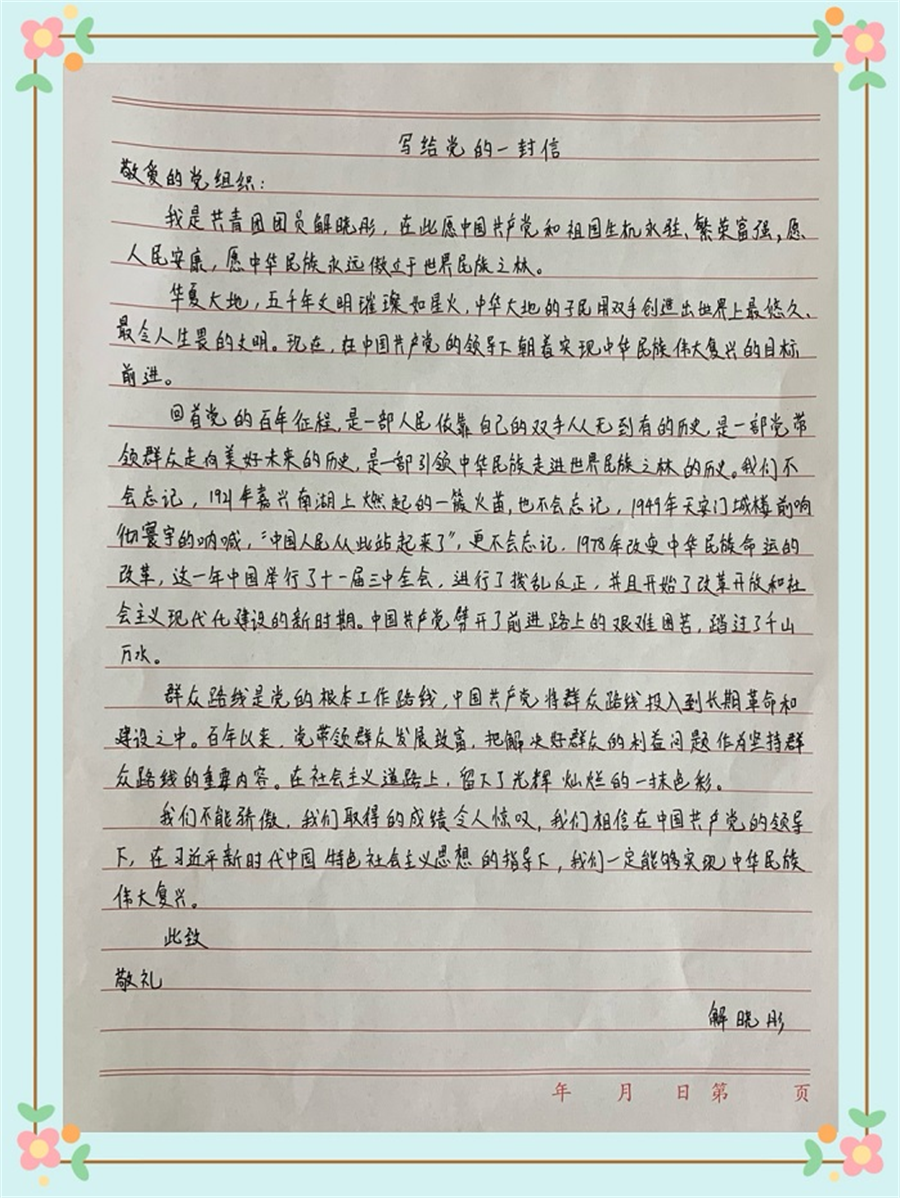 写给党的一封信
敬爱的党组织：
我是共青团团员解晓彤，在此愿中国共产党和祖国生机永驻、繁荣富强，愿
人民安康，愿中华民族永远傲立于世界民族之林。
华夏大地，五千年文明璀璨如星火，中华大地的子民用双手创造出世界上最悠久、
最令人生畏的文明。现在，在中国共产党的领导下朝着实现中华民族伟大复兴的目标
前进。
回首党的百年征程，是一部人民依靠自己的双手从无到有的历史，是一部党带
领群众走向美好未来的历史，是一部引领中华民族走进世界民族之林的历史。我们不
会忘记，1921年嘉兴南湖上燃起的一簇火苗，也不会忘记，1949年天安门城楼前响
彻寰宇的呐喊，“中国人民从此站起来了”，更不会忘记，1978年改变中华民族命运的
改革，这一年中国举行了十一届三中全会，进行了拨乱反正，并且开始了改革开放和社
会主义现代化建设的新时期。中国共产党劈开了前进路上的艰难困苦，踏过了千山
万水。
群众路线是党的根本工作路线，中国共产党将群众路线投入到长期革命和
建设之中。百年以来，党带领群众发展致富，把解决好群众的利益问题作为坚持群
众路线的重要内容。在社会主义道路上，留下了光辉灿烂的一抹色彩。
我们不能骄傲，我们取得的成绩令人惊叹，我们相信在中国共产党的领导
下，在习近平新时代中国特色社会主义思想的指导下，我们一定能够实现中华民族
伟大复兴。
此致
敬礼
解晓彤
年 月 日 第 页